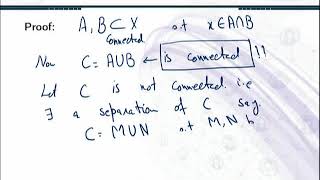 Proof: A, B ⊂ X s.t x ∈ A∩B
Connected
Now C = A∪B ← is connected !!
Let C is not connected. i.e
∃ a separation of C say
C = M∪N s.t M, N b